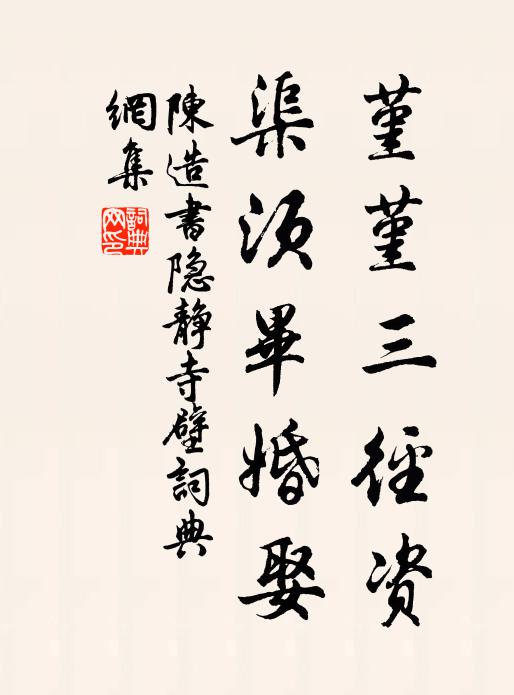 堇堇三徑资
渠须畢婚娶
陳造書隐静寺壁詞典
網集
詞典
网印